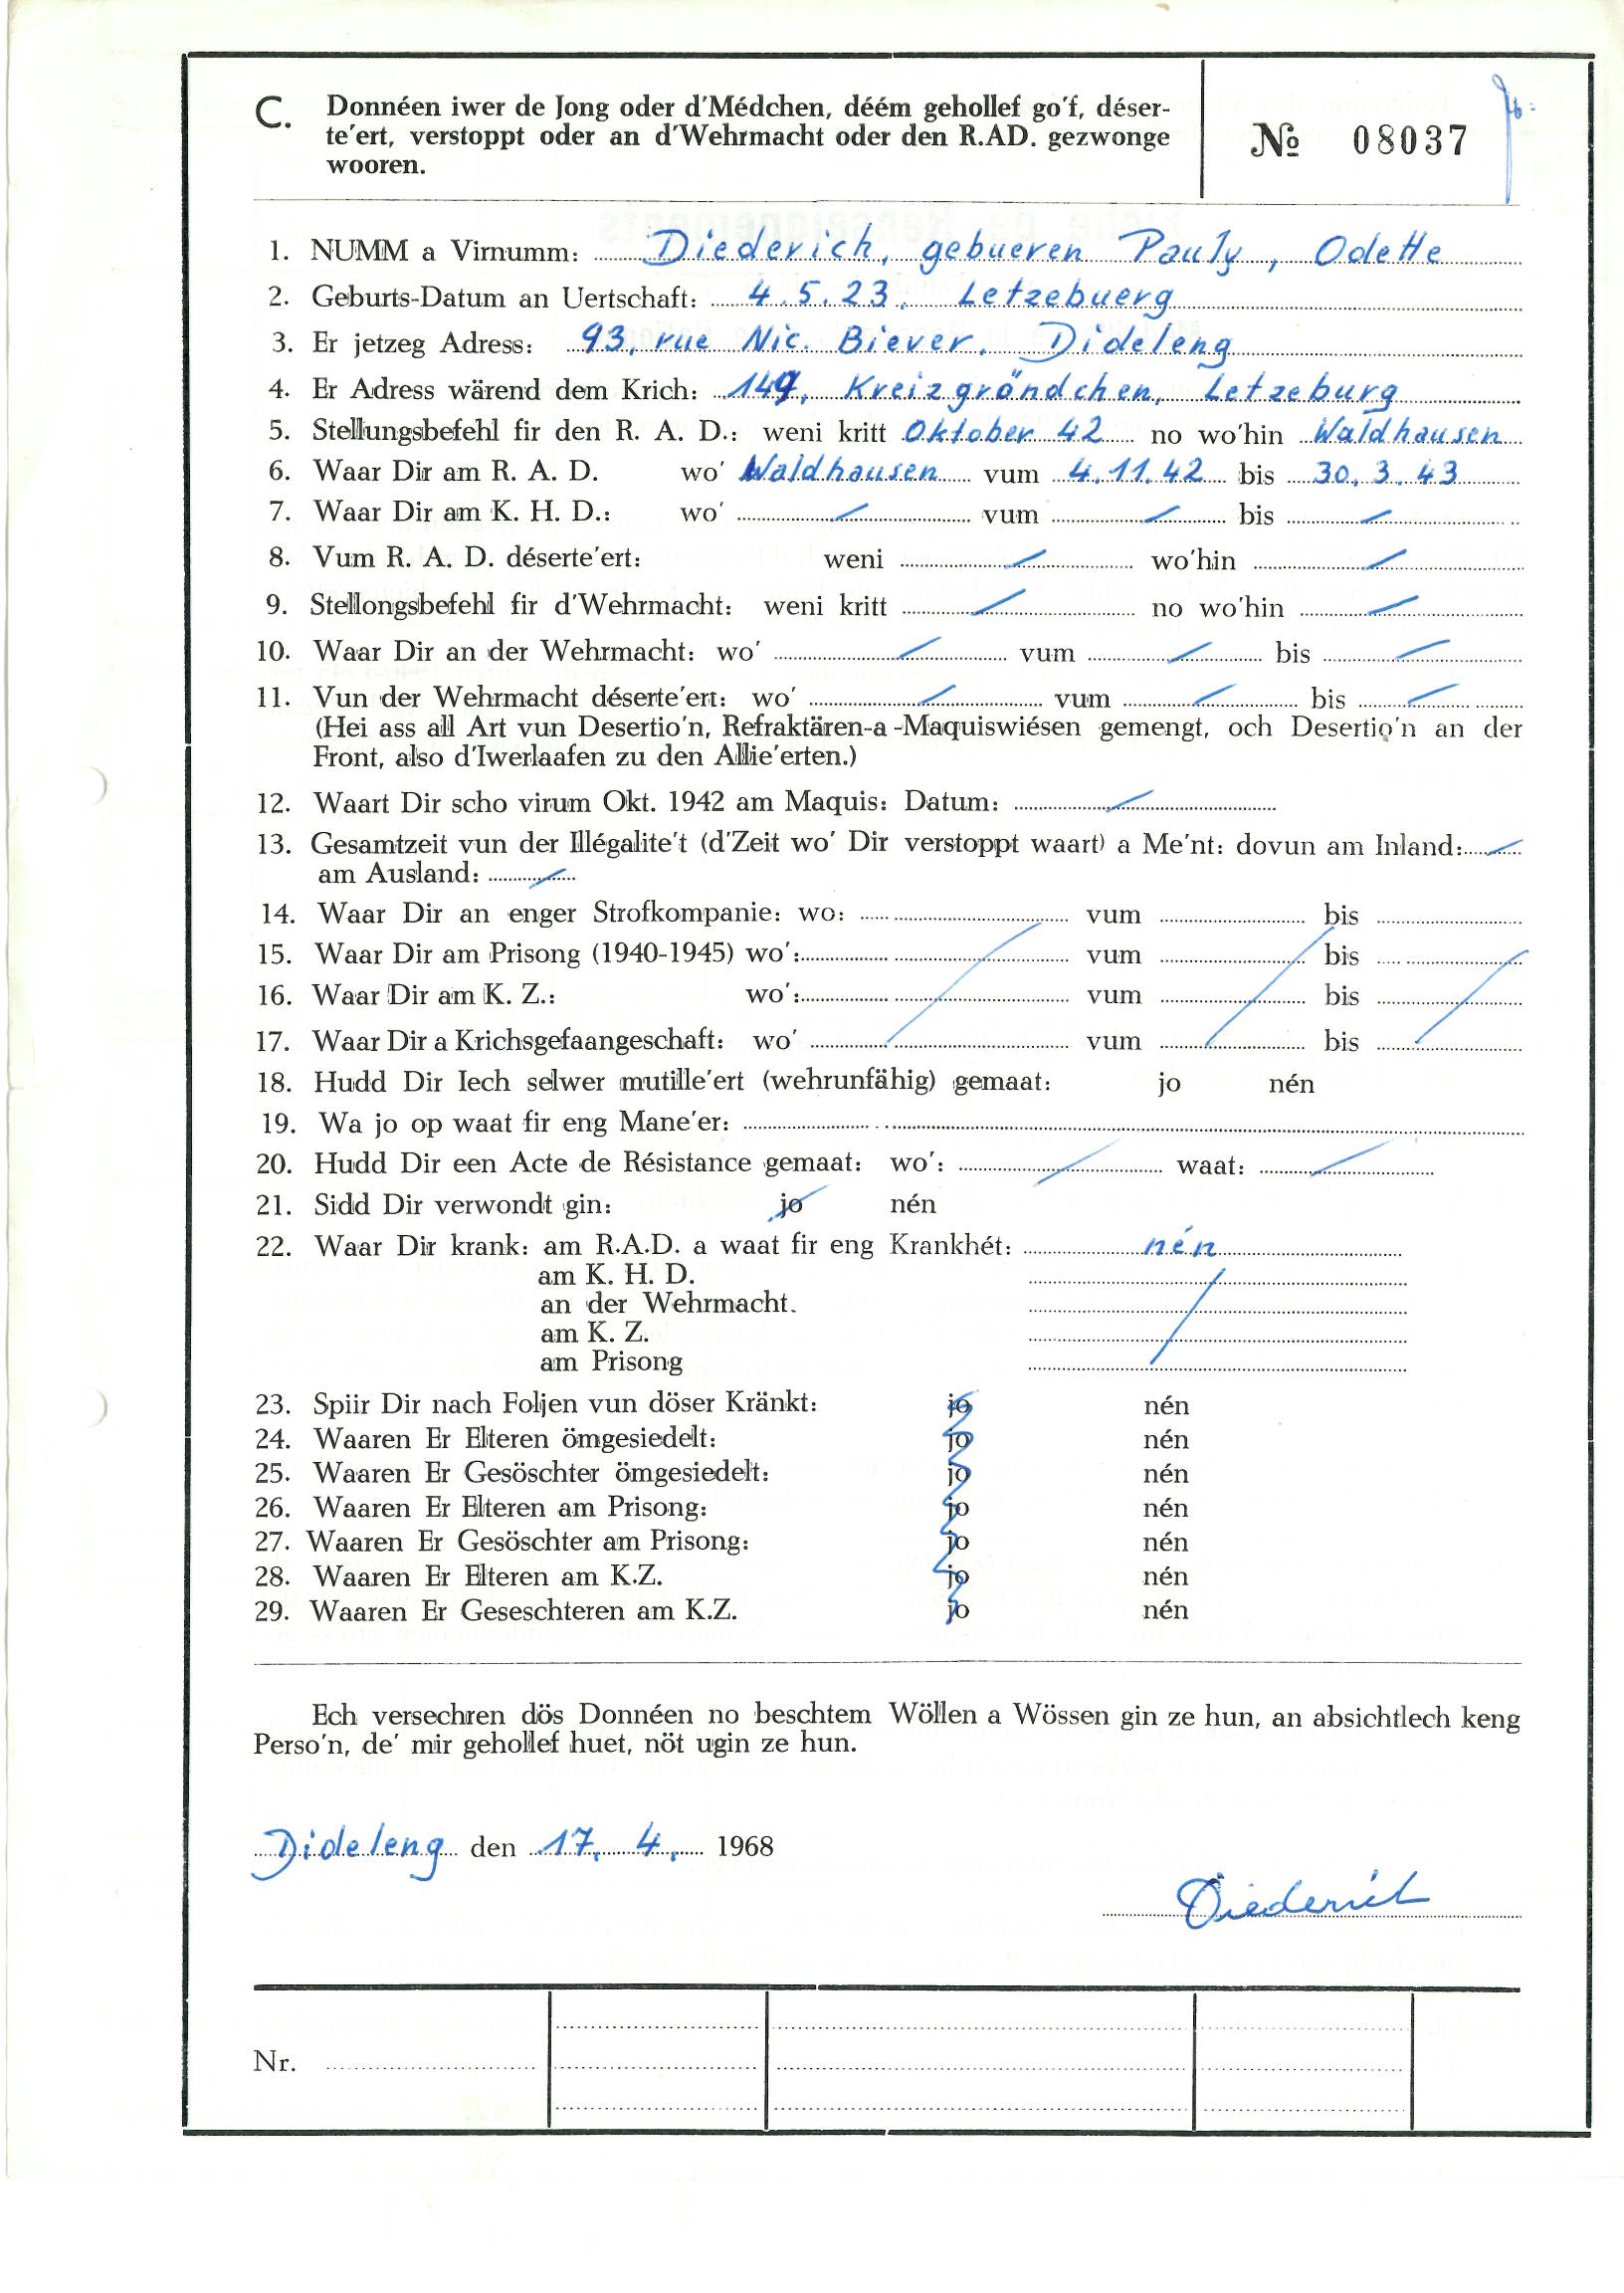 C. Donnéen iwer de Jong oder d'Médchen, déém gehollef go'f, déser-
te'ert, verstoppt oder an d'Wehrmacht oder den R.AD. gezwonge
wooren.
№ 08037
1. NUMM a Virnumm: Diederich, gebueren Pauly, Odette
2. Geburts-Datum an Uertschaft: 4.5.23, Letzebuerg
3. Er jetzeg Adress: 93, rue Nic. Biever, Dideleng
4. Er Adress wärend dem Krich: 149, Kreizgröndchen, Letzeburg
5. Stellungsbefehl fir den R. A. D.: weni kritt Oktober 42 no wo'hin Waldhausen
6. Waar Dir am R. A. D. wo' Waldhausen vum 4.11.42 bis 30.3.43
7. Waar Dir am K. H. D.: wo' / vum / bis /
8. Vum R. A. D. déserte'ert: weni / wo'hin /
9. Stellongsbefehl fir d'Wehrmacht: weni kritt / no wo'hin /
10. Waar Dir an der Wehrmacht: wo' / vum / bis /
11. Vun der Wehrmacht déserte'ert: wo' / vum / bis /
(Hei ass all Art vun Desertio'n, Refraktären-a-Maquiswiésen gemengt, och Desertio'n an der
Front, also d'Iwerlaafen zu den Allie'erten.)
12. Waart Dir scho virum Okt. 1942 am Maquis: Datum: /
13. Gesamtzeit vun der Illégalite't (d'Zeit wo' Dir verstoppt waart) a Me'nt: dovun am Inland: /
am Ausland: /
14. Waar Dir an enger Strofkompanie: wo: vum bis
15. Waar Dir am Prisong (1940-1945) wo': vum bis
16. Waar Dir am K. Z.: wo': vum bis
17. Waar Dir a Krichsgefaangeschaft: wo' vum bis
18. Hudd Dir Iech selwer mutille'ert (wehrunfähig) gemaat: jo nén
19. Wa jo op waat fir eng Mane'er:
20. Hudd Dir een Acte de Résistance gemaat: wo': / waat: /
21. Sidd Dir verwondt gin: jo nén
22. Waar Dir krank: am R.A.D. a waat fir eng Krankhét: nén
am K. H. D.
an der Wehrmacht.
am K. Z.
am Prisong
23. Spiir Dir nach Foljen vun döser Kränkt: jo nén
24. Waaren Er Elteren ömgesiedelt: jo nén
25. Waaren Er Gesöschter ömgesiedelt: jo nén
26. Waaren Er Elteren am Prisong: jo nén
27. Waaren Er Gesöschter am Prisong: jo nén
28. Waaren Er Elteren am K.Z. jo nén
29. Waaren Er Geseschteren am K.Z. jo nén
Ech versechren dös Donnéen no beschtem Wöllen a Wössen gin ze hun, an absichtlech keng
Perso'n, de' mir gehollef huet, nöt ugin ze hun.
Dideleng den 17. 4. 1968
Diederich
Nr.